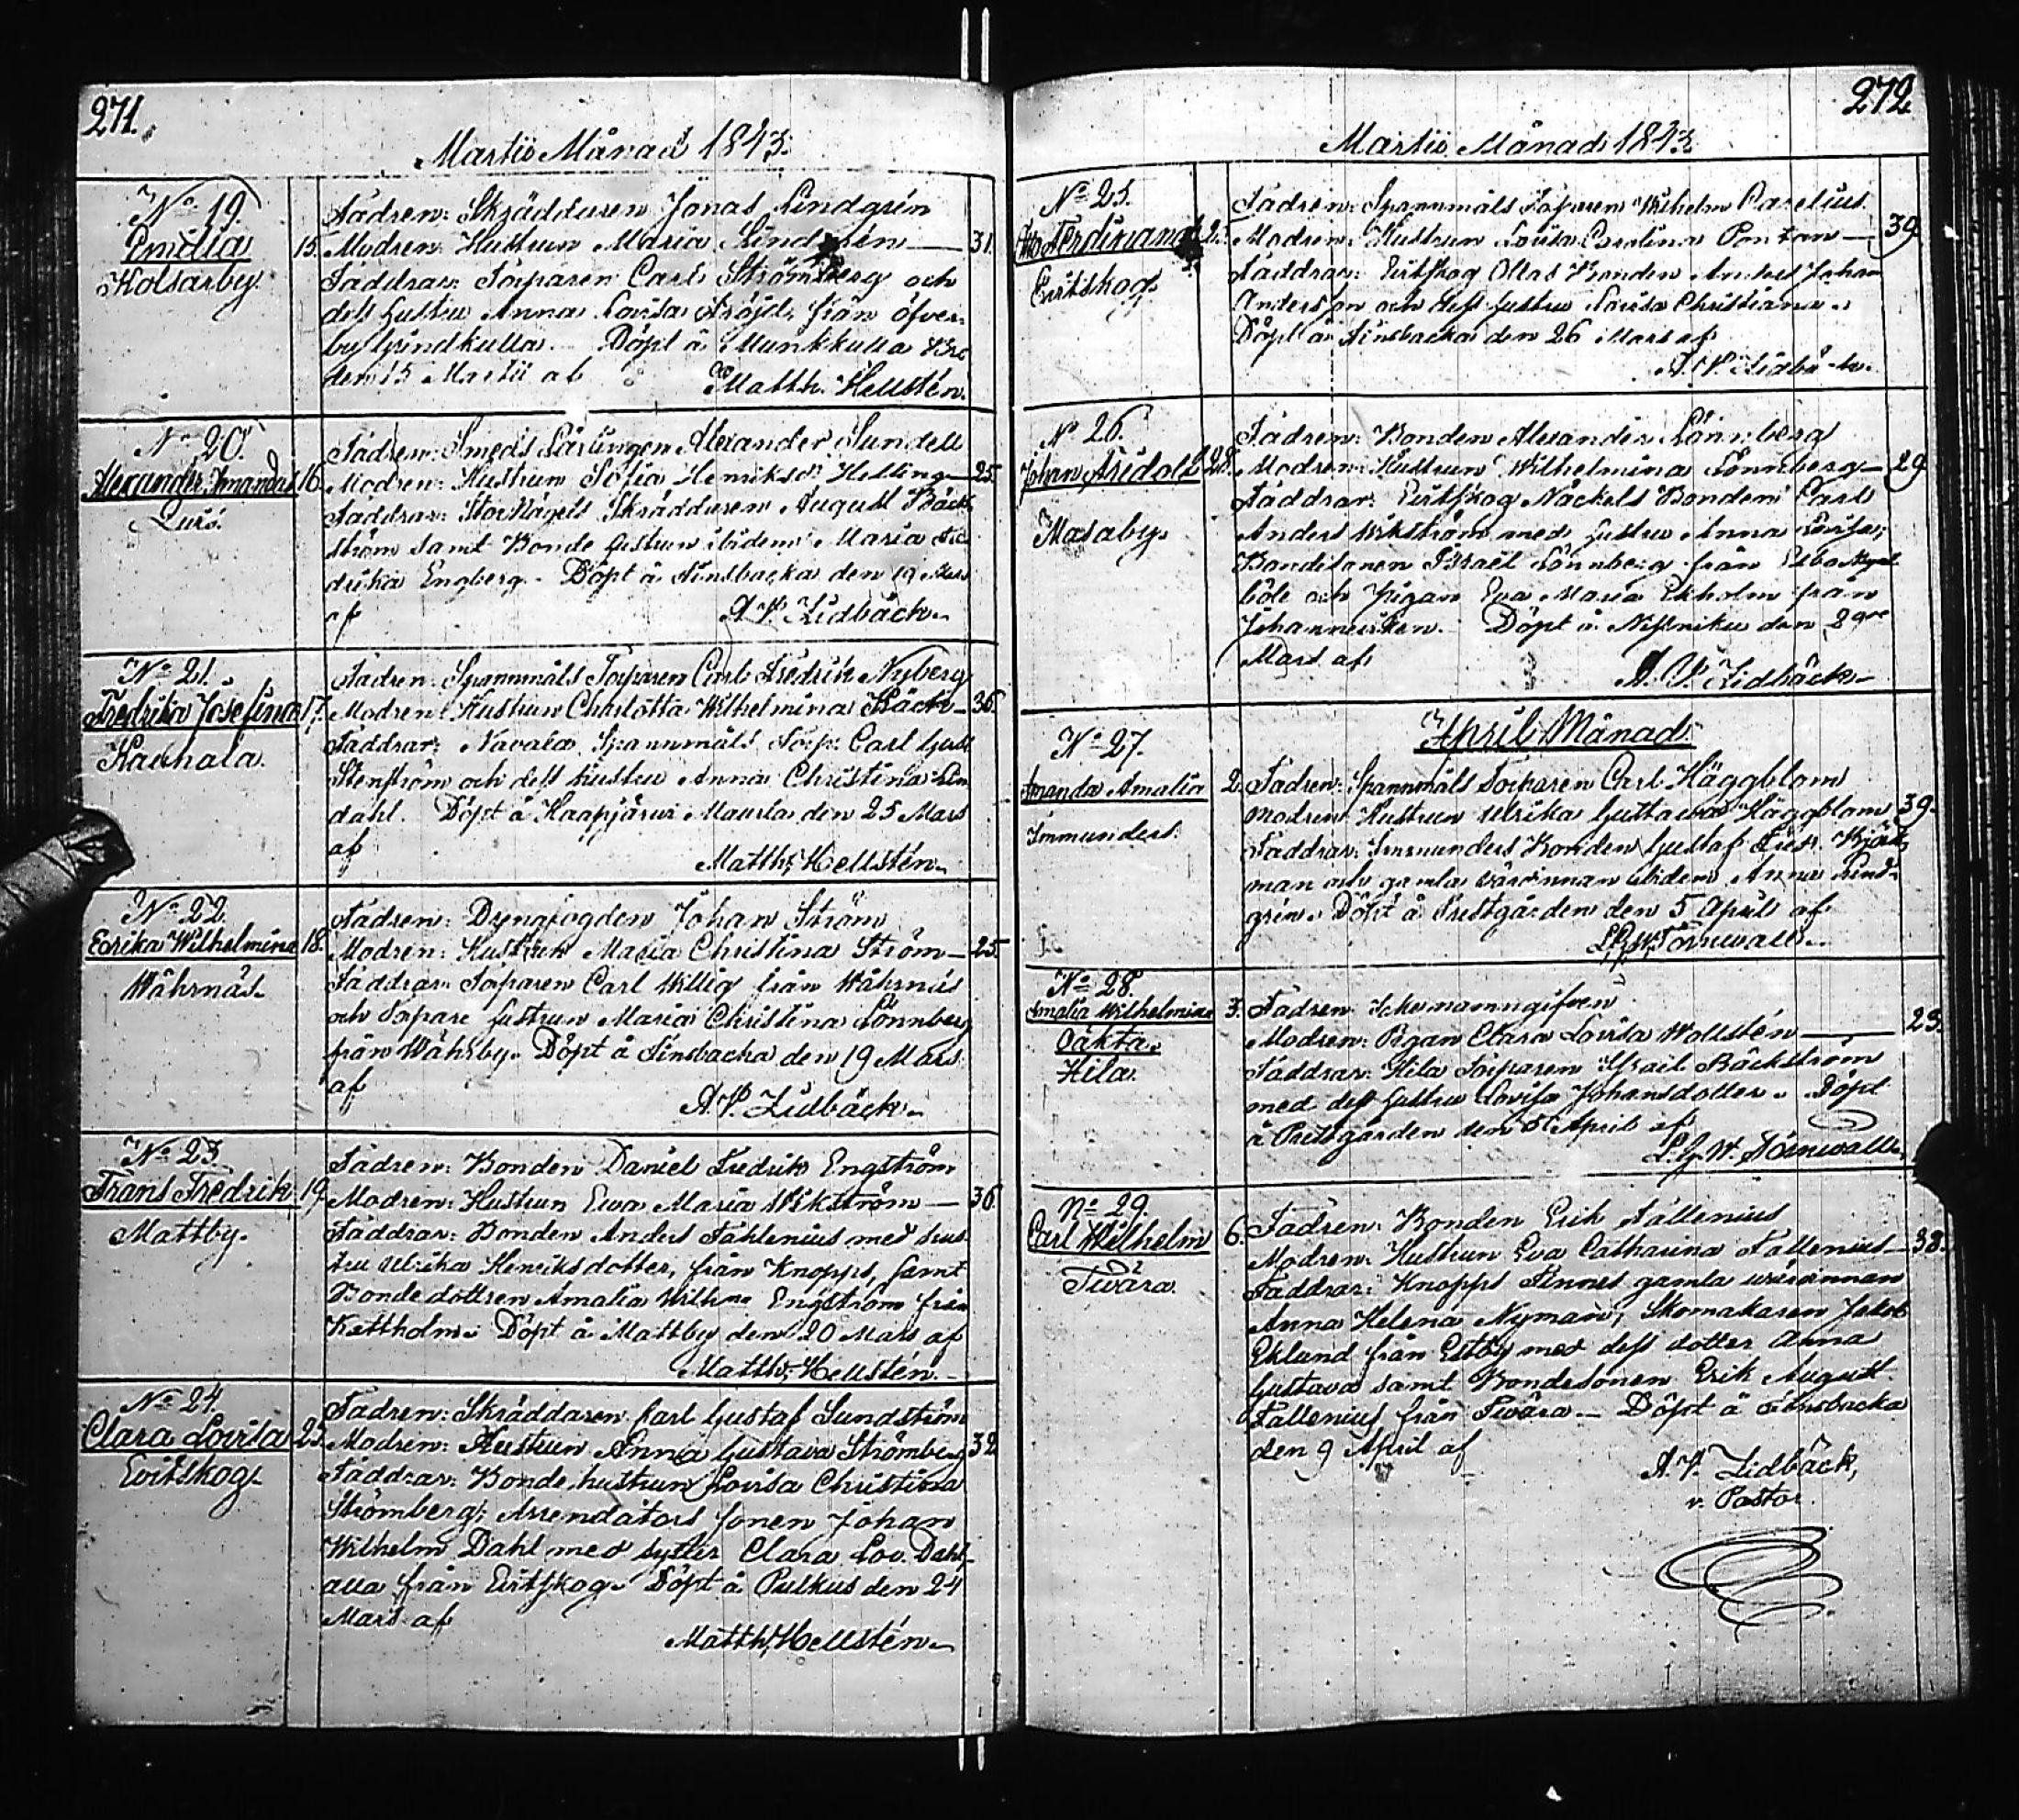 271.
Martii Månad 1843.
No 19.
Emilia
Kolsarby.
15.
Fadren: Skräddaren Jonas Lindgrén
Modren: Hustrun Maria Lindgrén — 31.
Faddrar: Torparen Carl Strömberg och
dess hustru Anna Lovisa från öfver-
by Grindkulla. Döpt å Munkkulla
den 15 Martii af
Matth. Hellstén.
No 20.
Alexander Amandus
16.
Fadren: Smeds Lärlingen Alexander Sundell
Modren: Hustrun Sofia Henriksdr Helling — 25.
Faddrar: Stor Nägels Skräddaren August Bäck-
ström samt Bonde hustrun ibidem Maria Fre-
drika Engberg. Döpt å Finsbacka den 19 Mars
af
A. V. Lidbäck.
No 21.
Fredrika Josefina
Kauhala.
17.
Fadren: Spannmåls Torparen Carl Fredrik Nyberg
Modren: Hustrun Charlotta Wilhelmina Bäck — 36.
Faddrar: Navala Spannmåls Torp: Carl Gust:
Stenström och dess hustru Anna Christina Lin
dahl. Döpt å Haapjärvi Maurla den 25 Mars
af
Matth: Hellstén.
No 22.
Edrika Wilhelmina
Wåhrnäs.
18.
Fadren: Drengfogden Johan Ström
Modren: Hustrun Maria Christina Ström — 25.
Faddrar: Torparen Carl Willig från Wåhrnäs
och Torpare hustrun Maria Christina Lönnberg
från Wåhrby. Döpt å Finsbacka den 19 Mars
af
A. V. Lidbäck.
No 23.
Frans Fredrik
Mattby.
19.
Fadren: Bonden Daniel Fredrik Engström
Modren: Hustrun Ewa Maria Wikström — 36.
Faddrar: Bonden Anders Fahlenius med hus-
tru Ulrika Henriksdotter, från Knopps, samt
Bondedottren Amalia Wilhna Engström från
Kattholm. Döpt å Mattby den 20 Mars af
Matth: Hellstén.
No 24.
Clara Lovisa
Evitskog.
23.
Fadren: Skräddaren Carl Gustaf Sundström
Modren: Hustrun Anna Gustava Strömberg 32
Faddrar: Bonde hustrun Lovisa Christina
Strömberg; Arrendators sonen Johan
Wilhelm Dahl med syster Clara Lov. Dahl
alla från Evitskog. Döpt å Pulkus den 24
Mars af
Matth: Hellstén.
272
Martii Månad 1843
No 25.
Ferdinand
Evitskog.
Fadren: Spannmåls Torparen Wilhelm Carelius.
Modren: Hustrun Lovisa Carolina Pontan — 39.
Faddrar: Evitskog Ollas Bonden Anders Johan
Andersson och dess hustru Lovisa Christiana.
Döpt å Finsbacka den 26 Mars af
A. V. Lidbäck.
No 26.
Johan Fridolf
Masaby.
28.
Fadren: Bonden Alexander Lönnberg
Modren: Hustrun Wilhelmina Lönnberg — 29
Faddrar: Evitskog Näckels Bonden Carl
Anders Wikström med hustru Anna Lovisa;
Bondesonen Israel Lönnberg från Esbo
böle och Pigan Eva Maria Ekholm från
Döpt å den 29de
Mars af
A. V. Lidbäck
April Månad
No 27.
Amanda Amalia
Immunders.
2.
Fadren: Spannmåls Torparen Carl Häggblom
modren: Hustrun Ulrika Gustava Häggblom 39.
Faddrar: Immunders Bonden Gustaf Björk
man och gamla värdinnan ibidem Anna Lind-
grén. Döpt å Prestgården den 5 April af
L. G. W. Törnwall.
No 28.
Amalia Wilhelmina
Oäkta.
Hila.
3.
Fadren: Icke namngifven
Modren: Pigan Clara Lovisa Wollstén — 23.
Faddrar: Hila Torparen Israel Bäckström
med dess hustru Lovisa Johansdotter. Döpt
å Prestgården den 5 April af
L. G. W. Törnwall.
No 29.
Carl Wilhelm
Twära.
6.
Fadren: Bonden Erik Fallenius
Modren: Hustrun Eva Catharina Fallenius — 38.
Faddrar: Knopps Finnes gamla värdinnan
Anna Helena Nyman, Skomakaren Jakob
Eklund från Estby med dess dotter Anna
Gustava samt Bondesonen Erik August
Fallenius från Twära. — Döpt å Finsbacka
den 9 April af
A. V. Lidbäck,
v. Pastor.